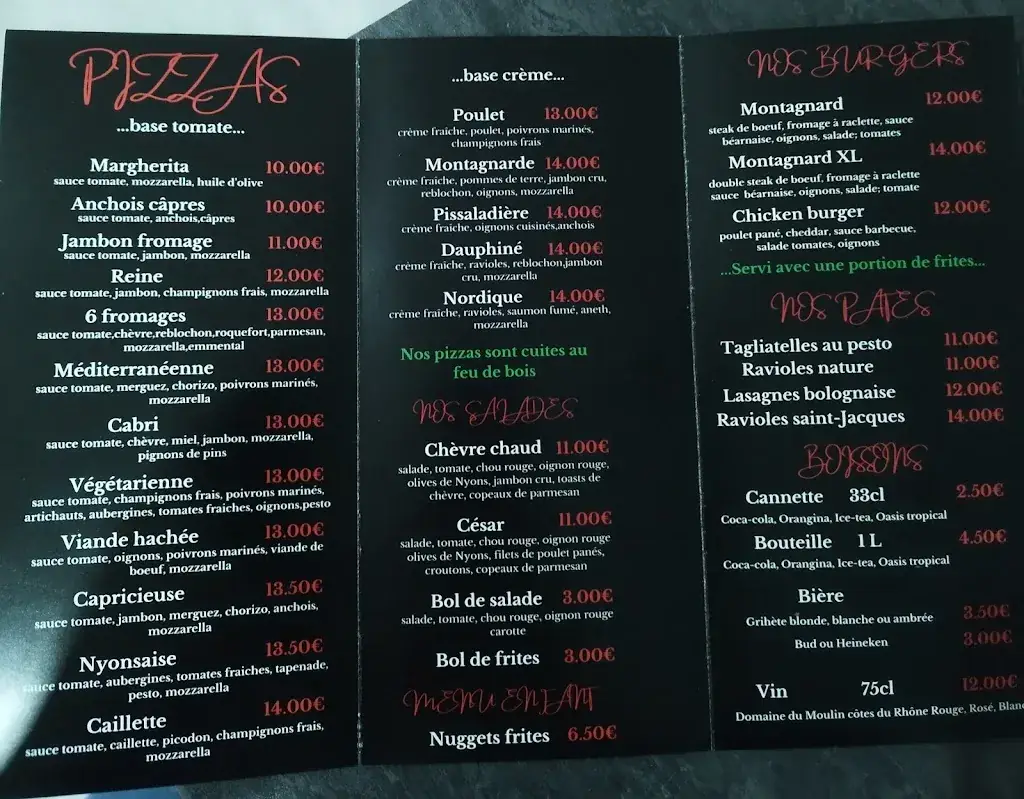 PIZZAS
...base tomate...
Margherita 10.00€
sauce tomate, mozzarella, huile d'olive
Anchois câpres 10.00€
sauce tomate, anchois,câpres
Jambon fromage 11.00€
sauce tomate, jambon, mozzarella
Reine 12.00€
sauce tomate, jambon, champignons frais, mozzarella
6 fromages 13.00€
sauce tomate,chèvre,reblochon,roquefort,parmesan,
mozzarella,emmental
Méditerranéenne 13.00€
sauce tomate, merguez, chorizo, poivrons marinés,
mozzarella
Cabri 13.00€
sauce tomate, chèvre, miel, jambon, mozzarella,
pignons de pins
Végétarienne 13.00€
sauce tomate, champignons frais, poivrons marinés,
artichauts, aubergines, tomates fraiches, oignons,pesto
Viande hachée 13.00€
sauce tomate, oignons, poivrons marinés, viande de
boeuf, mozzarella
Capricieuse 13.50€
sauce tomate, jambon, merguez, chorizo, anchois,
mozzarella
Nyonsaise 13.50€
sauce tomate, aubergines, tomates fraiches, tapenade,
pesto, mozzarella
Caillette 14.00€
sauce tomate, caillette, picodon, champignons frais,
mozzarella
...base crème...
Poulet 13.00€
crème fraîche, poulet, poivrons marinés,
champignons frais
Montagnarde 14.00€
crème fraîche, pommes de terre, jambon cru,
reblochon, oignons, mozzarella
Pissaladière 14.00€
crème fraîche, oignons cuisinés,anchois
Dauphiné 14.00€
crème fraîche, ravioles, reblochon,jambon
cru, mozzarella
Nordique 14.00€
crème fraîche, ravioles, saumon fumé, aneth,
mozzarella
Nos pizzas sont cuites au
feu de bois
NOS SALADES
Chèvre chaud 11.00€
salade, tomate, chou rouge, oignon rouge,
olives de Nyons, jambon cru, toasts de
chèvre, copeaux de parmesan
César 11.00€
salade, tomate, chou rouge, oignon rouge
olives de Nyons, filets de poulet panés,
croutons, copeaux de parmesan
Bol de salade 3.00€
salade, tomate, chou rouge, oignon rouge
carotte
Bol de frites 3.00€
MENU ENFANT
Nuggets frites 6.50€
NOS BURGERS
Montagnard 12.00€
steak de boeuf, fromage à raclette, sauce
béarnaise, oignons, salade; tomates
Montagnard XL 14.00€
double steak de boeuf, fromage à raclette
sauce béarnaise, oignons, salade; tomate
Chicken burger 12.00€
poulet pané, cheddar, sauce barbecue,
salade tomates, oignons
...Servi avec une portion de frites...
NOS PATES
Tagliatelles au pesto 11.00€
Ravioles nature 11.00€
Lasagnes bolognaise 12.00€
Ravioles saint-Jacques 14.00€
BOISSONS
Cannette 33cl 2.50€
Coca-cola, Orangina, Ice-tea, Oasis tropical
Bouteille 1 L 4.50€
Coca-cola, Orangina, Ice-tea, Oasis tropical
Bière
Grihète blonde, blanche ou ambrée 3.50€
Bud ou Heineken 3.00€
Vin 75cl 12.00€
Domaine du Moulin côtes du Rhône Rouge, Rosé, Blanc